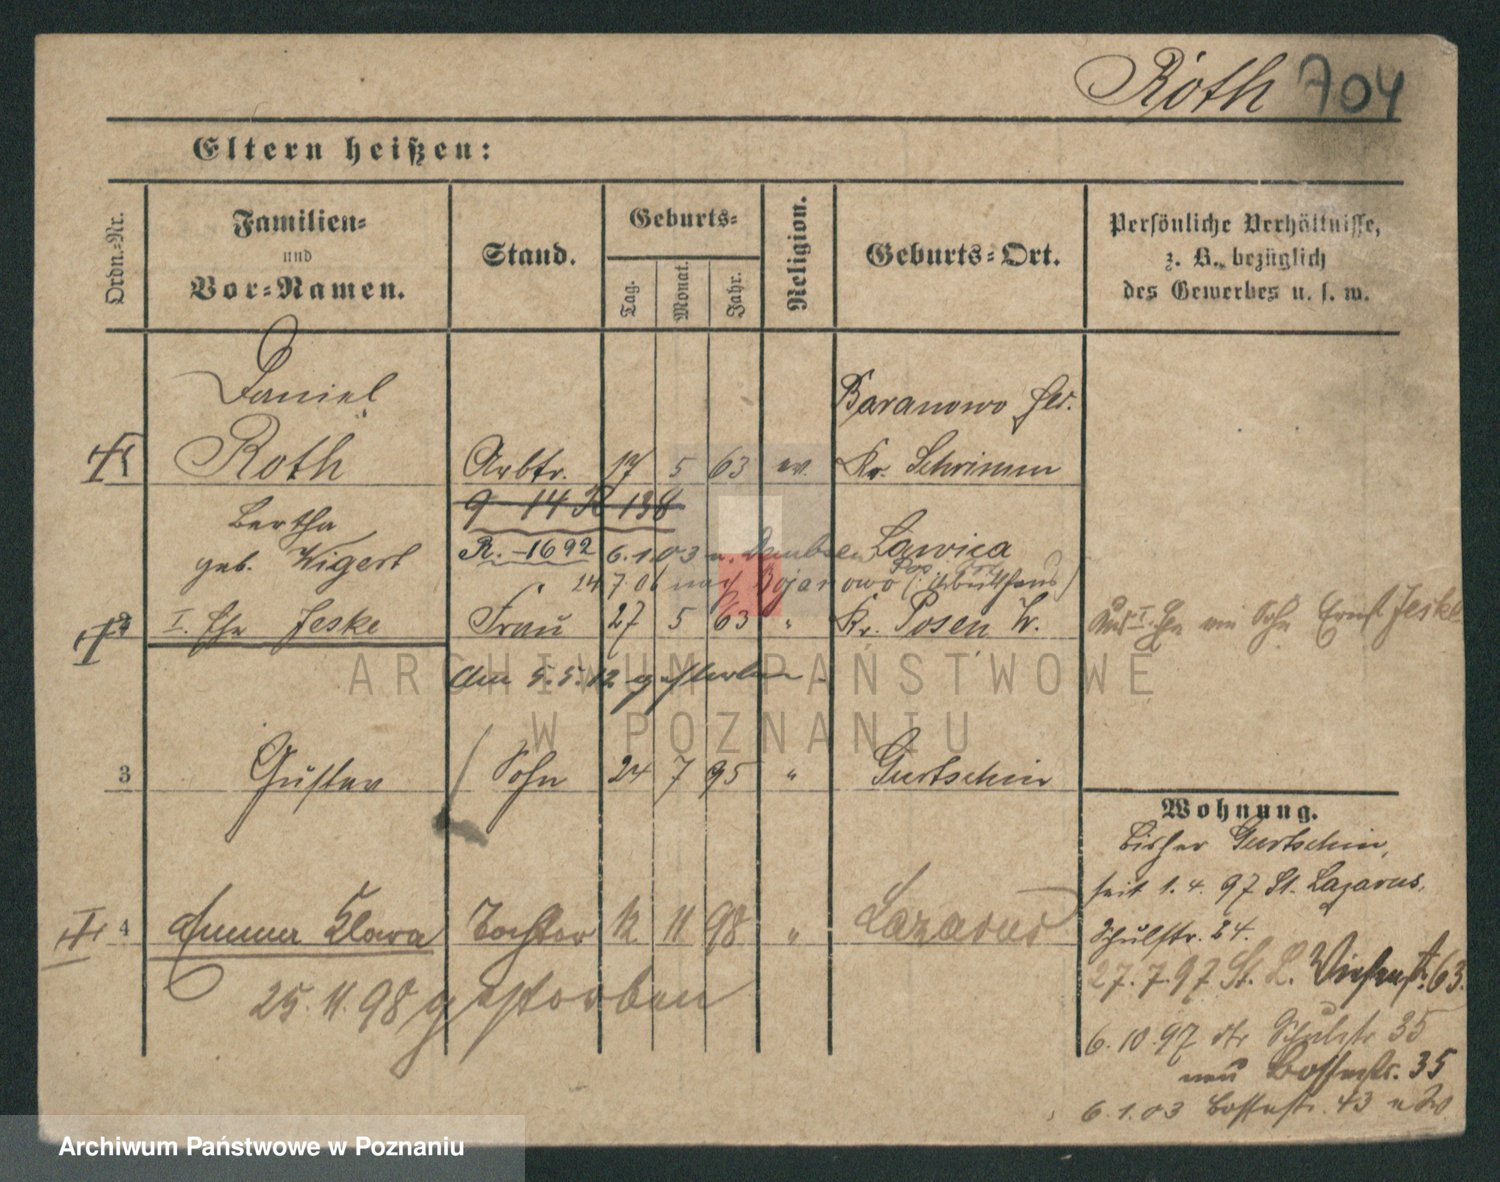 Roth 704
Eltern heißen:
Ordn.-Nr.
Familien-
und
Vor-Namen.
Stand.
Geburts-
Tag.
Monat.
Jahr.
Religion.
Geburts-Ort.
Persönliche Verhältnisse,
z. B. bezüglich
des Gewerbes u. s. w.
Daniel
Roth Arbtr. 17 5 63 ev.
Baranowo
Kr. Schrimm
9 14 R 138
Bertha
geb. Wigert
R. 1692 6.1.03 n. Dembsen
24 7.06 nach Bojanowo
Lawica
2 I. Ehe Jeske Frau 27 5 63 " Kr. Posen W.
Aus I. Ehe ein Sohn Ernst Jeske
am 5.5.12 gestorben
3 Gustav Sohn 24 7 95 " Gurtschin
4 Emma Klara Tochter 12 11 98 " Lazarus
25.11.98 gestorben
Wohnung.
bisher Gurtschin,
seit 1.4.97 St. Lazarus,
Schulstr. 24.
27.7.97 St. L. Wiesenstr. 63.
6.10.97 Schulstr 35
neu 35
6.1.03 43
ARCHIWUM PAŃSTWOWE
W POZNANIU
Archiwum Państwowe w Poznaniu